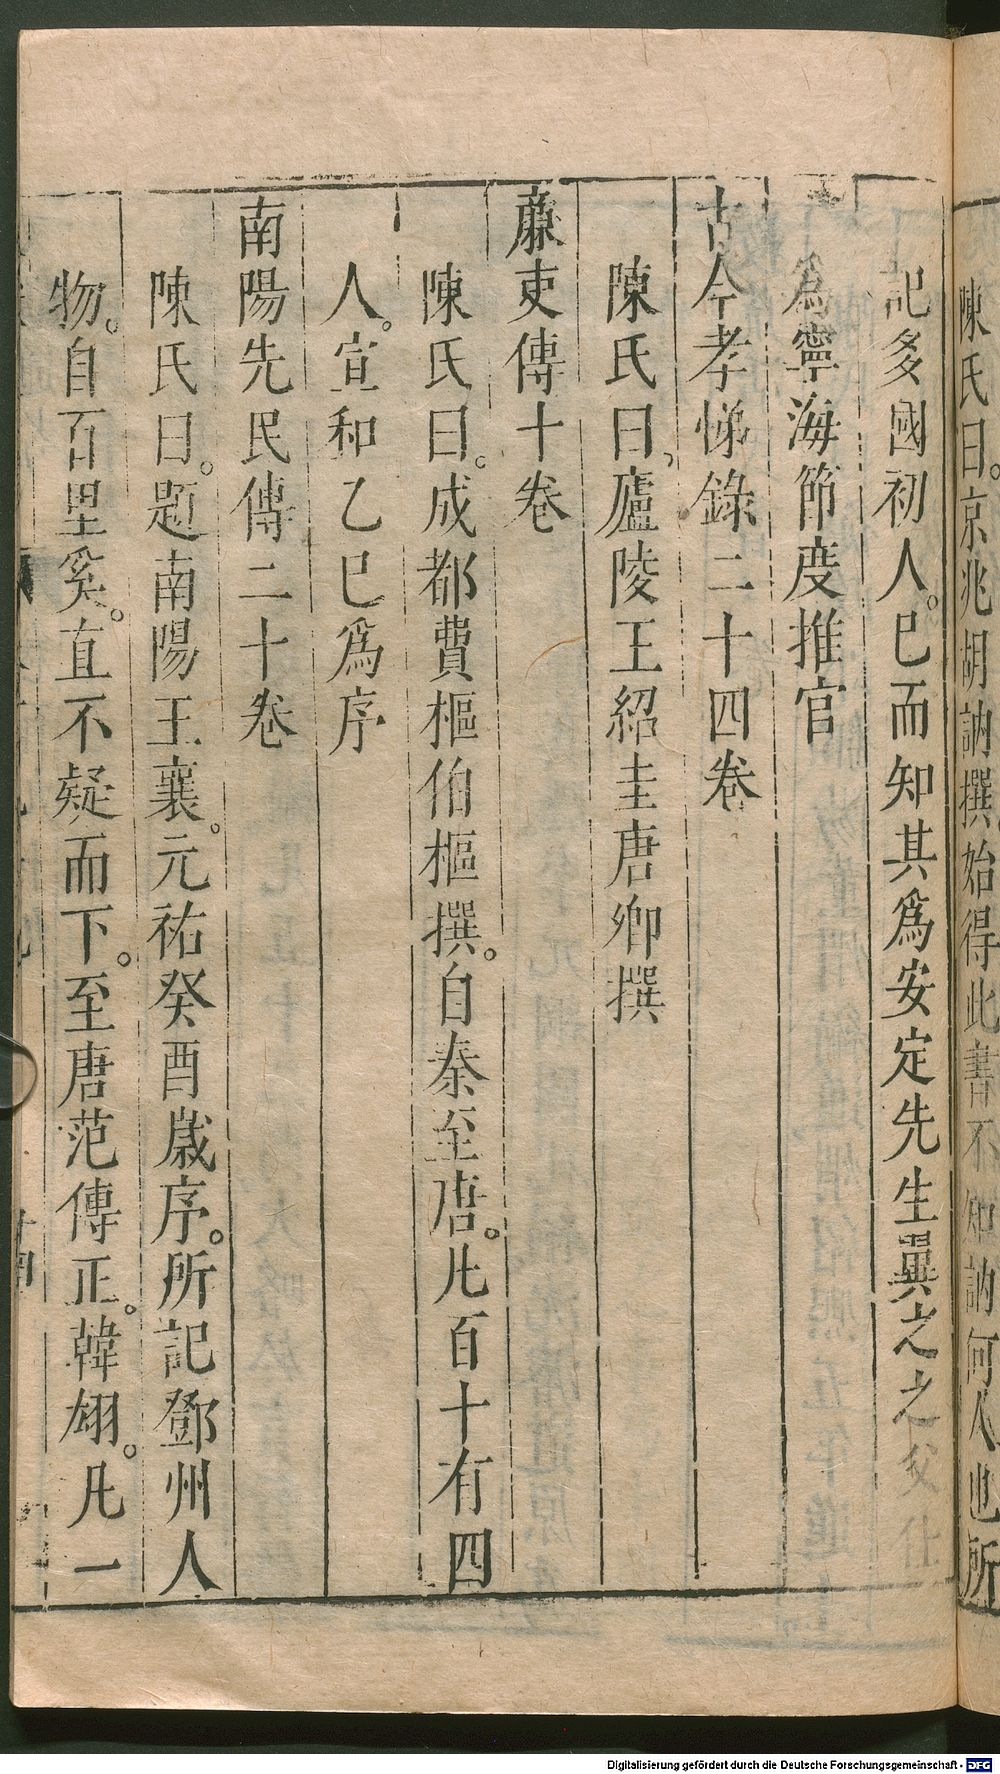 陳氏曰。京兆胡訥撰。始得此書不知訥何人也所
記多國初人。已而知其爲安定先生翼之之父仕
爲寧海節度推官
古今孝悌錄二十四卷
陳氏曰。廬陵王紹圭唐卿撰
亷吏傳十卷
陳氏曰。成都費樞伯樞撰。自秦至唐。凡百十有四
人。宣和乙巳爲序
南陽先民傳二十卷
陳氏曰。題南陽王襄。元祐癸酉歲序。所記鄧州人
物。自百里奚。直不疑而下。至唐范傳正。韓翃。凡一
Digitalisierung gefördert durch die Deutsche Forschungsgemeinschaft - DFG